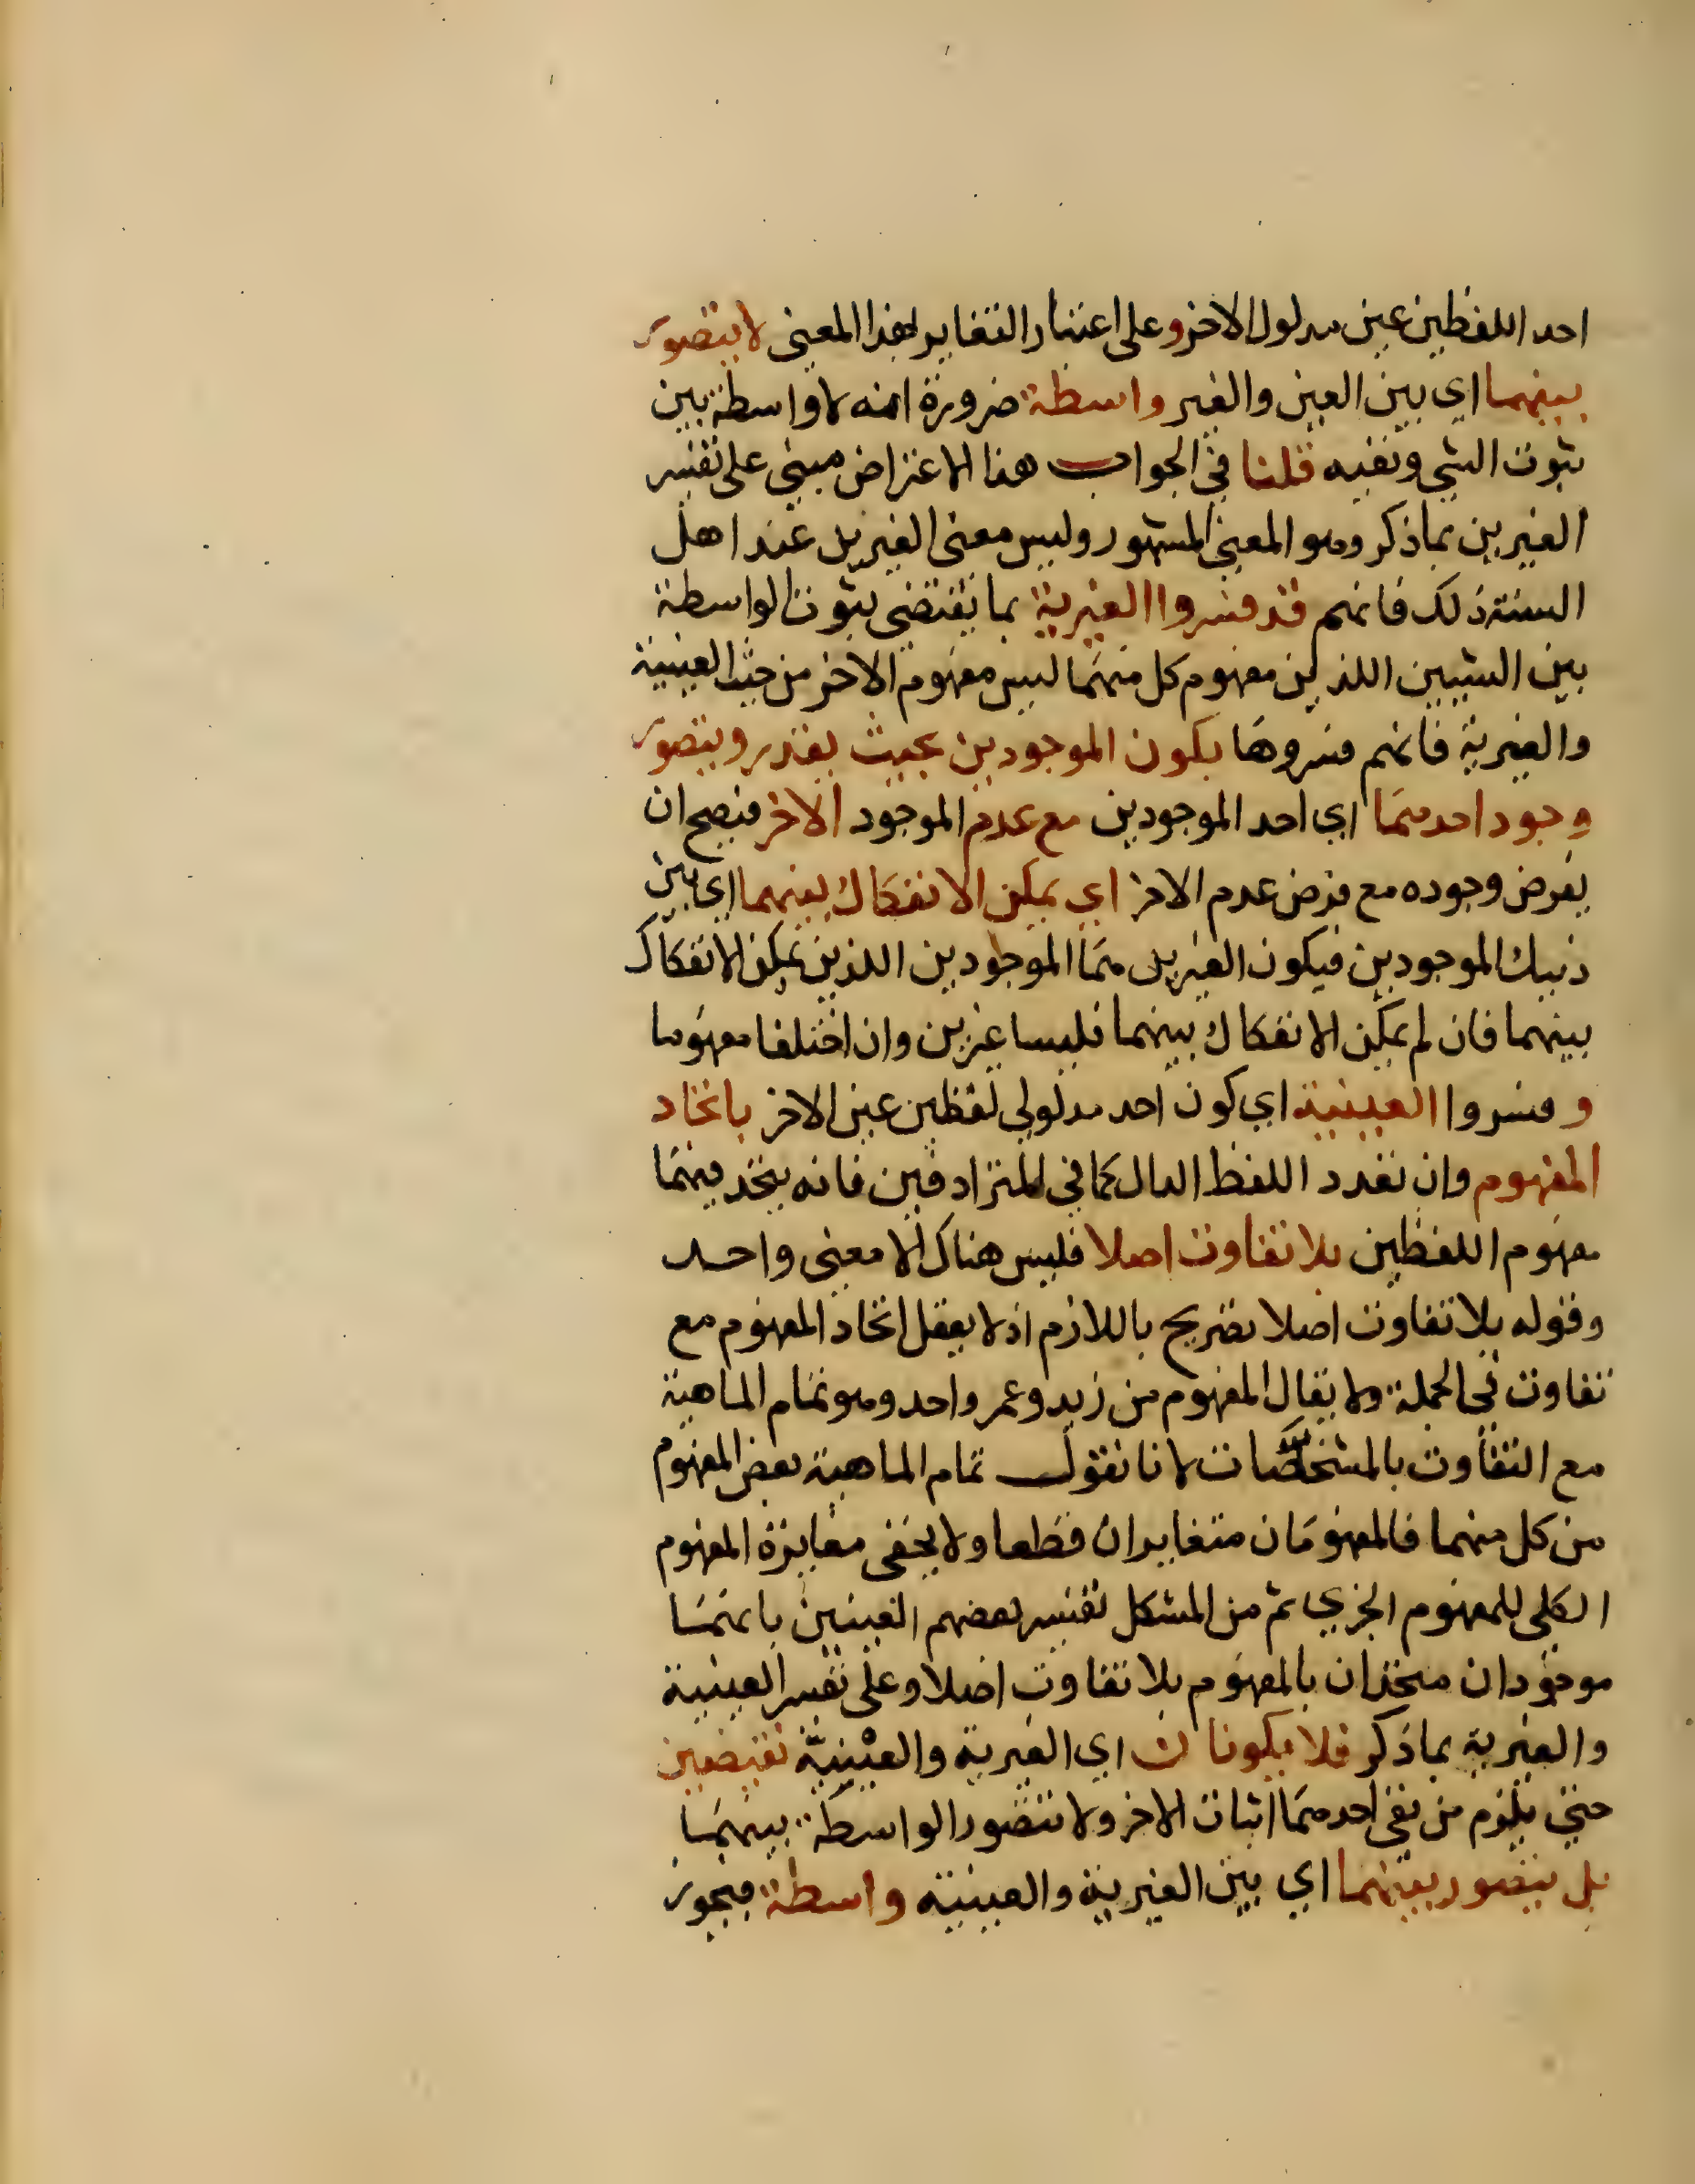 احد اللفظين عين مدلول الاخر وعلى اعتبار التغاير بهذا المعنى لا يتصور
بينهما اي بين العين والغير واسطة ضرورة انه لا واسطة بين
ثبوت الشي ونفيه قلنا في الجواب هذا الاعتراض مبني على تفسير
الغيرين بما ذكر وهو المعنى المشهور وليس معنى الغيرين عند اهل
السنة ذلك فانهم قد فسروا الغيرية بما يقتضي ثبوت الواسطة
بين الشيين اللذين مفهوم كل منهما ليس مفهوم الاخر من حيث العينية
والغيرية فانهم فسروها بكون الموجودين بحيث يقدر ويتصور
وجود احدهما اي احد الموجودين مع عدم الموجود الاخر فيصح ان
يفرض وجوده مع فرض عدم الاخر اي يمكن الانفكاك بينهما اي بين
ذينك الموجودين فيكون الغيرين هما الموجودين اللذين يمكن الانفكاك
بينهما فان لم يمكن الانفكاك بينهما فليسا غيرين وان اختلفا مفهوما
و فسروا العينية اي كون احد مدلولي لفظين عين الاخر باتحاد
المفهوم وان تعدد اللفظ الدال كما في المترادفين فانه يتحد فيهما
مفهوم اللفظين بلا تفاوت اصلا فليس هناك الا معنى واحد
وقوله بلا تفاوت اصلا تصريح باللازم اذ لا يعقل اتحاد المفهوم مع
تفاوت في الجملة ولا يقال المفهوم من زيد وعمر واحد وهو تمام الماهية
مع التفاوت بالمشخصات لانا نقول تمام الماهية بعض المفهوم
من كل منهما فالمفهومان متغايران قطعا ولا يخفى مغايرة المفهوم
الكلي للمفهوم الجزي ثم من المشكل تفسير بعضهم العينين بانهما
موجودان متحدان بالمفهوم بلا تفاوت اصلا وعلى تفسير العينية
والغيرية بما ذكر فلا يكونان اي الغيرية والعينية نقيضين
حتى يلزم من نفي احدهما اثبات الاخر ولا تتصور الواسطة بينهما
بل يتصور بينهما اي بين الغيرية والعينية واسطة فيجوز